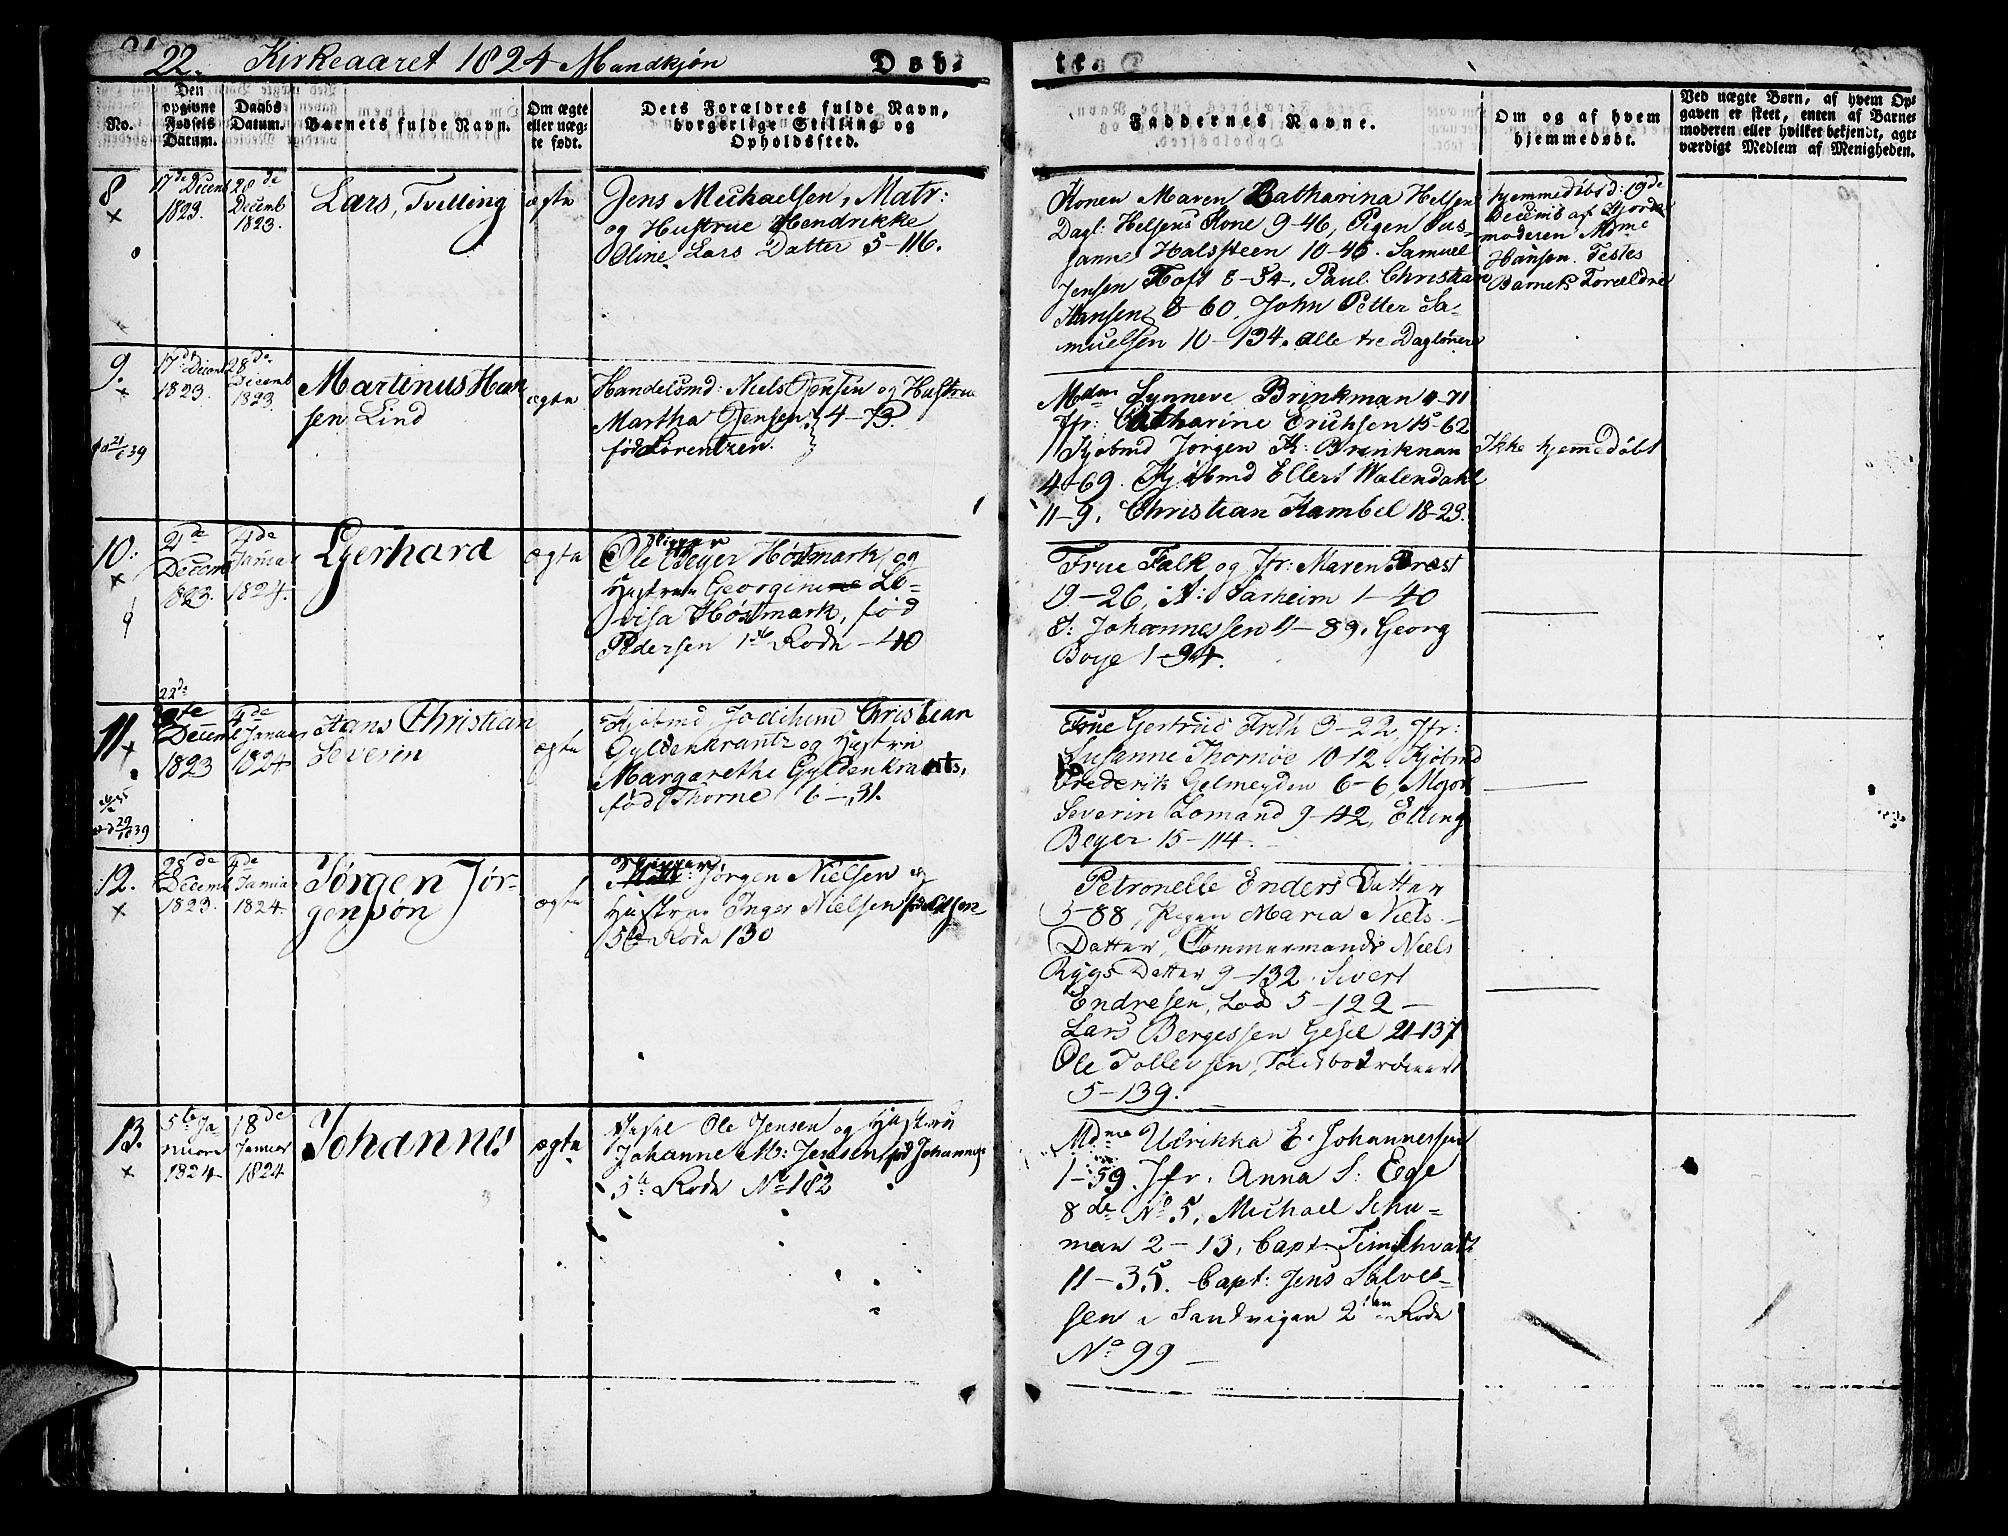 22. Kirkeaaret 1824 Mandkjøn Døb-
te.
No.
Den opgivne Fødsels Datum.
Daabs Datum.
Barnets fulde Navn.
Om ægte eller uæg-
te født.
Dets Forældres fulde Navn,
borgerlige Stilling og
Opholdssted.
Faddernes Navne.
Om og af hvem
hjemmedøbt.
Ved uægte Børn, af hvem Op-
gaven er skeet, enten af Barne-
moderen eller hvilket bekjendt, agt-
værdigt Medlem af Menigheden.
8
×
17de Decemb
1823.
28de
Decemb
1823.
Lars, Tvilling
ægte
Jens Michaelsen, Matr:
og Hustrue Hendrikke
Oline Lars Datter 5-116.
Konen Maren Catharina Helsens
Dagl: Helsens Kone 9-46, Pigen Sus-
sanne Halsteen 10-46. Samuel
Jensen Toft 8-54, Paul Christian
Hansen 8-60, John Petter Sa-
muelsen 10-134. alle tre Daglønere
hjemmedøbt d: 19de
Decemb af Hjorde-
moderen Mdme
Hansen. Testes
Barnets Forældre
9.
×
17de Decemb
1823.
28de
Decemb
1823.
Martinus Han
sen Lind
ægte
Handelsmd: Niels Jensen og Hustrue
Martha Jensen 4-73.
fød Lorentzen.
Mdme Synneve Brinkman 4-71
Jfr: Catharine Erichsen 15-62
Kjøbmd Jørgen K: Brinkman
4-69. Kjøbmd Ellert Walendahl
11-9. Christian Kambel 18-23.
Ikke hjemmedøbt
10.
×
21de
Decemb
1823.
4de
Januar
1824.
Gerhard
ægte
Skipper
Ole Beyer Høstmark, og
Hustrue Georgine Lo-
visa Høstmark, fød
Pedersen 1ste Rode - 40
Frue Falk og Jfr: Maren Præst
19-26, A: Sarheim 1-40
S: Johannessen 11-89. Georg
Boye 1-94.
11
×
22de
Decemb
1823
4de
Januar
1824
Hans Christian
Severin
ægte
Kjøbmd Jochum Christian
Gyldenkrantz og Hustrue
Margarethe Gyldenkrants,
fød Thorne 6-31.
Frue Gertrud Frith 3-22, Jfr:
Susanne Thornøe 10-12 Kjøbmd
Frederik Gelmeyden 6-6, Major
Severin Lomand 9-42, Elling
Beyer 15-114.
12.
×
28de
Decemb
1823.
4de
Januar
1824.
Jørgen Jør-
gensøn
ægte
Skipper
Matr: Jørgen Nielsen og
Hustrue Inger Nielsen fød Olsen
15de Rode 130
Petronelle Enders Datter
5-88, Pigen Maria Niels
Datter, Tømmermands Niels
Rygs Datter 9-132. Sivert
Endresen, Lods 5-122 -
Lars Bergessen Gesel 21-137
Ole Tollevsen, Toldbod
5-139.
13.
×
5te Ja-
nuar
1824
18de
Januar
1824
Johannes
ægte
Ole Jensen og Hustrue
Johanne M: Jensen, fød Johannes
5te Rode No 182
Mdme Ulrikka E: Johannessen
1-59. Jfr. Anna S: Ege
8de No 5, Michael Schu-
man 2-13, Capt
11-35. Capt: Jens Salves-
sen i Sandvigen 2den Rode
No 99